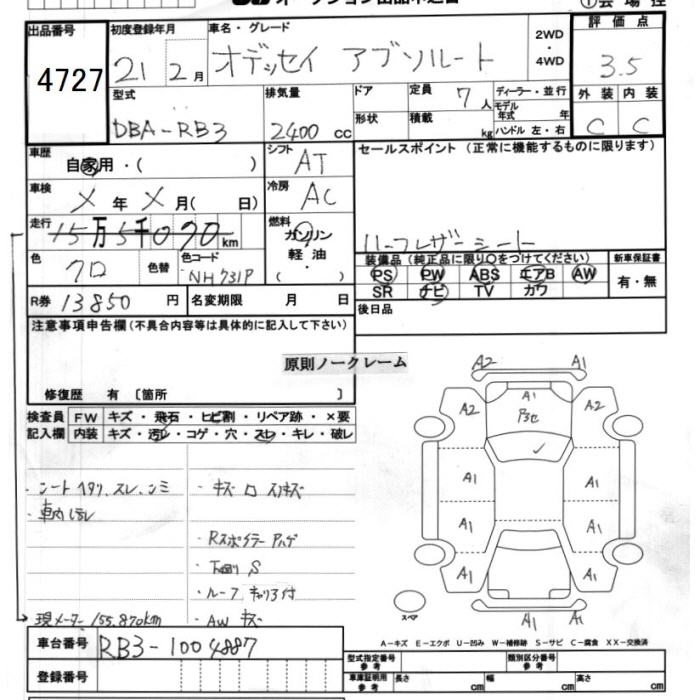 出品番号
4727
初度登録年月
21年 2月
車名・グレード
オデッセイ アブソルート
2WD
・
4WD
評価点
3.5
外装 内装
C C
型式
DBA-RB3
排気量
2400 cc
ドア
形状
定員 7人
積載 kg
ディーラー・並行
モデル年式 年
ハンドル 左・右
車歴
自家用・( )
シフト
AT
セールスポイント (正常に機能するものに限ります)
ハーフレザーシート
車検
X年X月( 日)
冷房
AC
走行
15万5千090km
燃料
ガソリン
軽油・
( )
色
クロ
色替
色コード
NH731P
装備品 (純正品に限り○をつけてください)
PS PW ABS エアB AW
SR ナビ TV カワ
新車保証書
有・無
R券 13850円
名変期限 月 日
後日品
注意事項申告欄(不具合内容等は具体的に記入して下さい)
原則ノークレーム
修復歴 有 〔箇所 〕
検査員記入欄
FW キズ・飛石・ヒビ割・リペア跡・×要
内装 キズ・汚レ・コゲ・穴・スレ・キレ・破レ
・シートヘタリ、スレ、シミ
・キズロ
・Rスポイラー
・下廻りS
・AW キズ
現メーター 155,870km
A2 A1
A2 A1 A2
A1 A1
A1 A1
A1 A1
A1 A1
スペア
A-キズ E-エクボ U-凹み W-補修跡 S-サビ C-腐食 XX-交換済
車台番号
RB3-1004887
登録番号
型式指定番号 参考
類別区分番号 参考
車庫証明用 参考
長さ cm
幅 cm
高さ cm